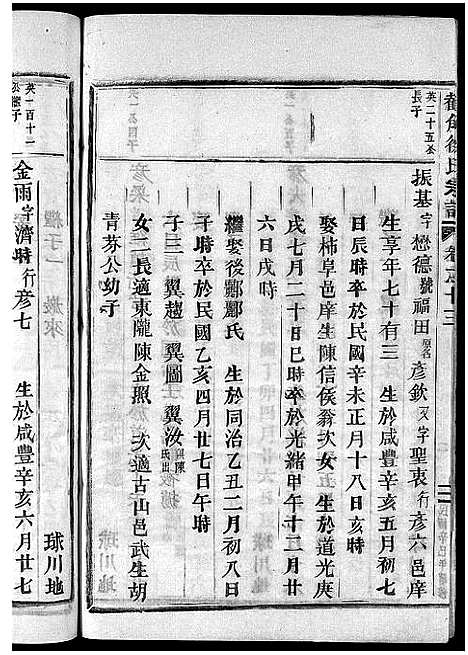 徐氏宗譜 卷之十三
英二十五公
長子
振基字懋德號福田原名彥欽又字聖衷行彥六邑庠
生享年七十有三 生於咸豐辛亥五月初七
日辰時卒於民國辛未正月十八日亥時
娶柿阜邑庠生陳信侯翁次女生於道光庚
戌七月二十日巳時卒於光緒甲午十二月廿
六日戌時
繼娶後酈酈氏 生於同治乙丑二月初八日
子時卒於民國乙亥四月廿七日午時
子三翼趨於翼圖翼汝陳氏出
女二長適東隴陳金照 次適古山邑武生胡
青芬公幼子 球川地
英一百十二
公幼子
金雨字濟時行彥七 生於咸豐辛亥六月廿七